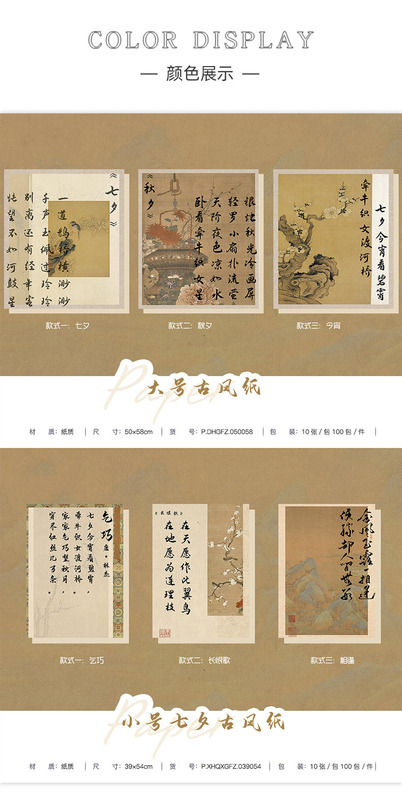 COLOR DISPLAY
— 颜色展示 —
《七夕》
一道鹊桥横渺渺
千声玉佩过玲玲
别离还有经年客
怅望不如河鼓星
《秋夕》
银烛秋光冷画屏
轻罗小扇扑流萤
天阶夜色凉如水
卧看牵牛织女星
七夕今宵看碧霄
牵牛织女渡河桥
款式一：七夕
款式二：秋夕
款式三：今宵
Paper
大号古风纸
材 质：纸质 | 尺 寸：50×58cm | 货 号：P.DHGFZ.050058 | 包 装：10张/包 100包/件 |
乞巧 唐·林杰
七夕今宵看碧霄
牵牛织女渡河桥
家家乞巧望秋月
穿尽红丝几万条
《长恨歌》
在天愿作比翼鸟
在地愿为连理枝
金风玉露一相逢
便胜却人间无数
款式一：乞巧
款式二：长恨歌
款式三：相逢
Paper
小号七夕古风纸
材 质：纸质 | 尺 寸：39×54cm | 货 号：P.XHQXGFZ.039054 | 包 装：10张/包 100包/件 |